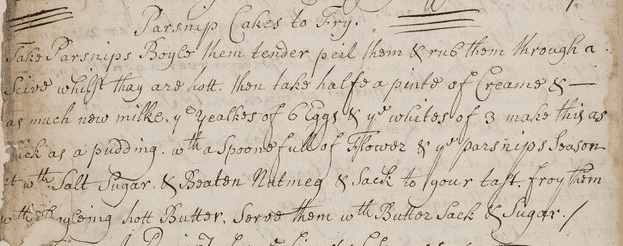 Parsnip Cakes to Fry.
Take Parsnips Boyle them tender peil them & rub them through a
Seive whilst thay are hott. then take halfe a pinte of Creame & —
as much new milke. ye yealkes of 6 Eggs & ye whites of 3 make this as
thick as a pudding. wth a Spoonefull of Flower & ye parsnips Season
it wth Salt Sugar. & Beaten Nutmeg & Sack to your tast. froy them
wth Boyleing hott Butter, Serve them wth Butter Sack & Sugar. /